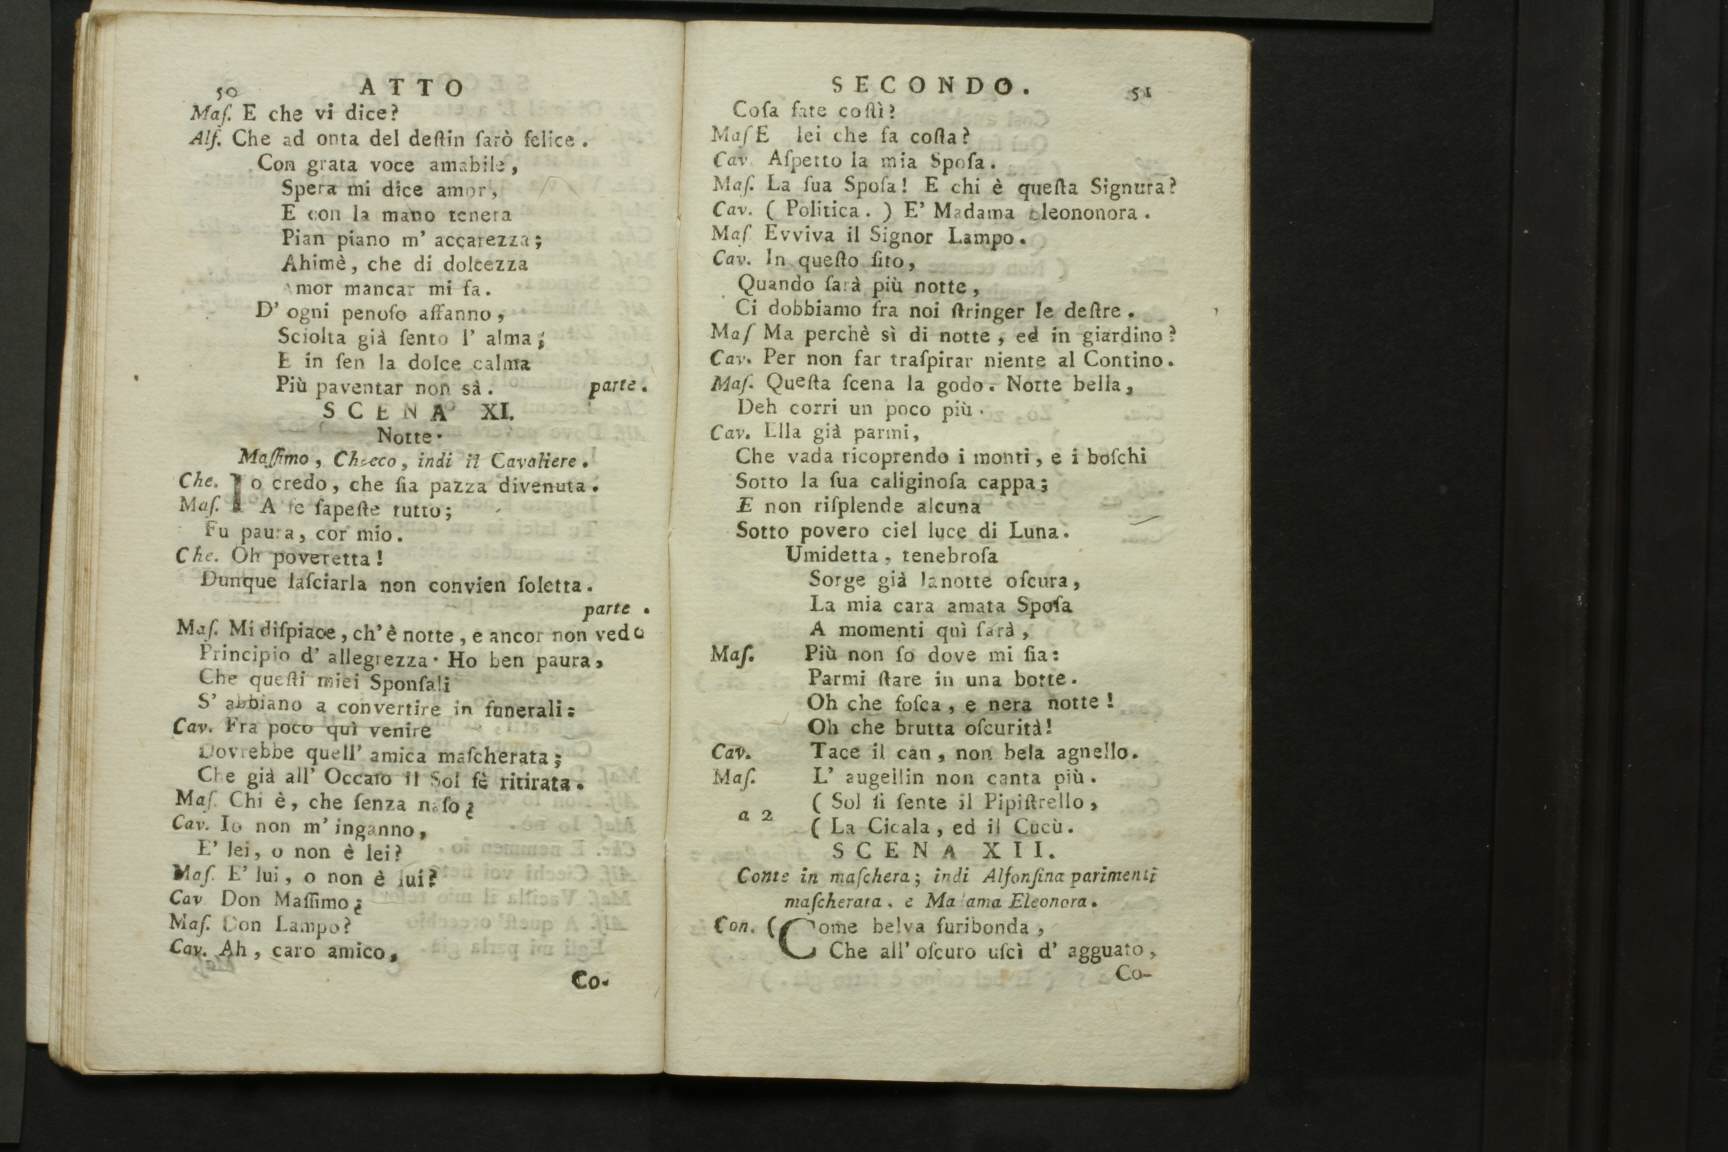 50 ATTO
Maſ. E che vi dice?
Alſ. Che ad onta del deſtin ſarò felice.
Con grata voce amabile,
Spera mi dice amor,
E con la mano tenera
Pian piano m' accarezza;
Ahimè, che di dolcezza
Amor mancar mi fa.
D' ogni penoſo affanno,
Sciolta già ſento l' alma;
E in ſen la dolce calma
Più paventar non sà. parte.
SCENA XI.
Notte.
Maſſimo, Checco, indi il Cavaliere.
Che. Io credo, che ſia pazza divenuta.
Maſ. A ſe ſapeſte tutto;
Fu paura, cor mio.
Che. Oh poveretta!
Dunque laſciarla non convien ſoletta.
parte.
Maſ. Mi diſpiace, ch' è notte, e ancor non vedo
Principio d' allegrezza. Ho ben paura,
Che queſti miei Sponſali
S' abbiano a convertire in funerali:
Cav. Fra poco quì venire
Dovrebbe quell' amica maſcherata;
Che già all' Occaſo il Sol ſè ritirata.
Maſ. Chi è, che ſenza naſo?
Cav. Io non m' inganno,
E' lei, o non è lei?
Maſ. E' lui, o non è lui?
Cav Don Maſſimo?
Maſ. Don Lampo?
Cav. Ah, caro amico,
Co-
SECONDO. 51
Coſa fate coſtì?
Maſ E lei che fa coſta?
Cav. Aſpetto la mia Spoſa.
Maſ. La ſua Spoſa! E chi è queſta Signura?
Cav. ( Politica. ) E' Madama Eleononora.
Maſ Evviva il Signor Lampo.
Cav. In queſto ſito,
Quando ſarà più notte,
Ci dobbiamo fra noi ſtringer le deſtre.
Maſ Ma perchè sì di notte, ed in giardino?
Cav. Per non far traſpirar niente al Contino.
Maſ. Queſta ſcena la godo. Notte bella,
Deh corri un poco più.
Cav. Ella già parmi,
Che vada ricoprendo i monti, e i boſchi
Sotto la ſua caliginoſa cappa;
E non riſplende alcuna
Sotto povero ciel luce di Luna.
Umidetta, tenebroſa
Sorge già lanotte oſcura,
La mia cara amata Spoſa
A momenti quì ſarà,
Maſ. Più non ſo dove mi ſia:
Parmi ſtare in una botte.
Oh che foſca, e nera notte!
Oh che brutta oſcurità!
Cav. Tace il can, non bela agnello.
Maſ. L' augellin non canta più.
a 2 ( Sol ſi ſente il Pipiſtrello,
( La Cicala, ed il Cucù.
SCENA XII.
Conte in maſchera; indi Alfonſina parimenti
maſcherata. e Madama Eleonora.
Con. ( Come belva furibonda,
Che all' oſcuro uſcì d' agguato,
Co-